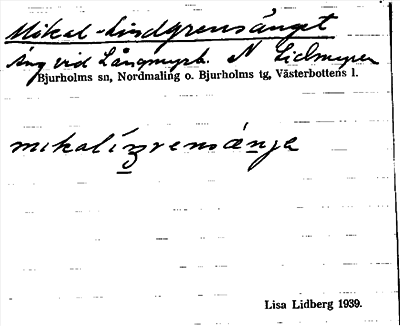 Mikal-Lindgrensänget
Äng vid Långmyrb. N Lidmyren
Bjurholms sn, Nordmaling o. Bjurholms tg, Västerbottens l.
mikalíŋrensáŋja
Lisa Lidberg 1939.